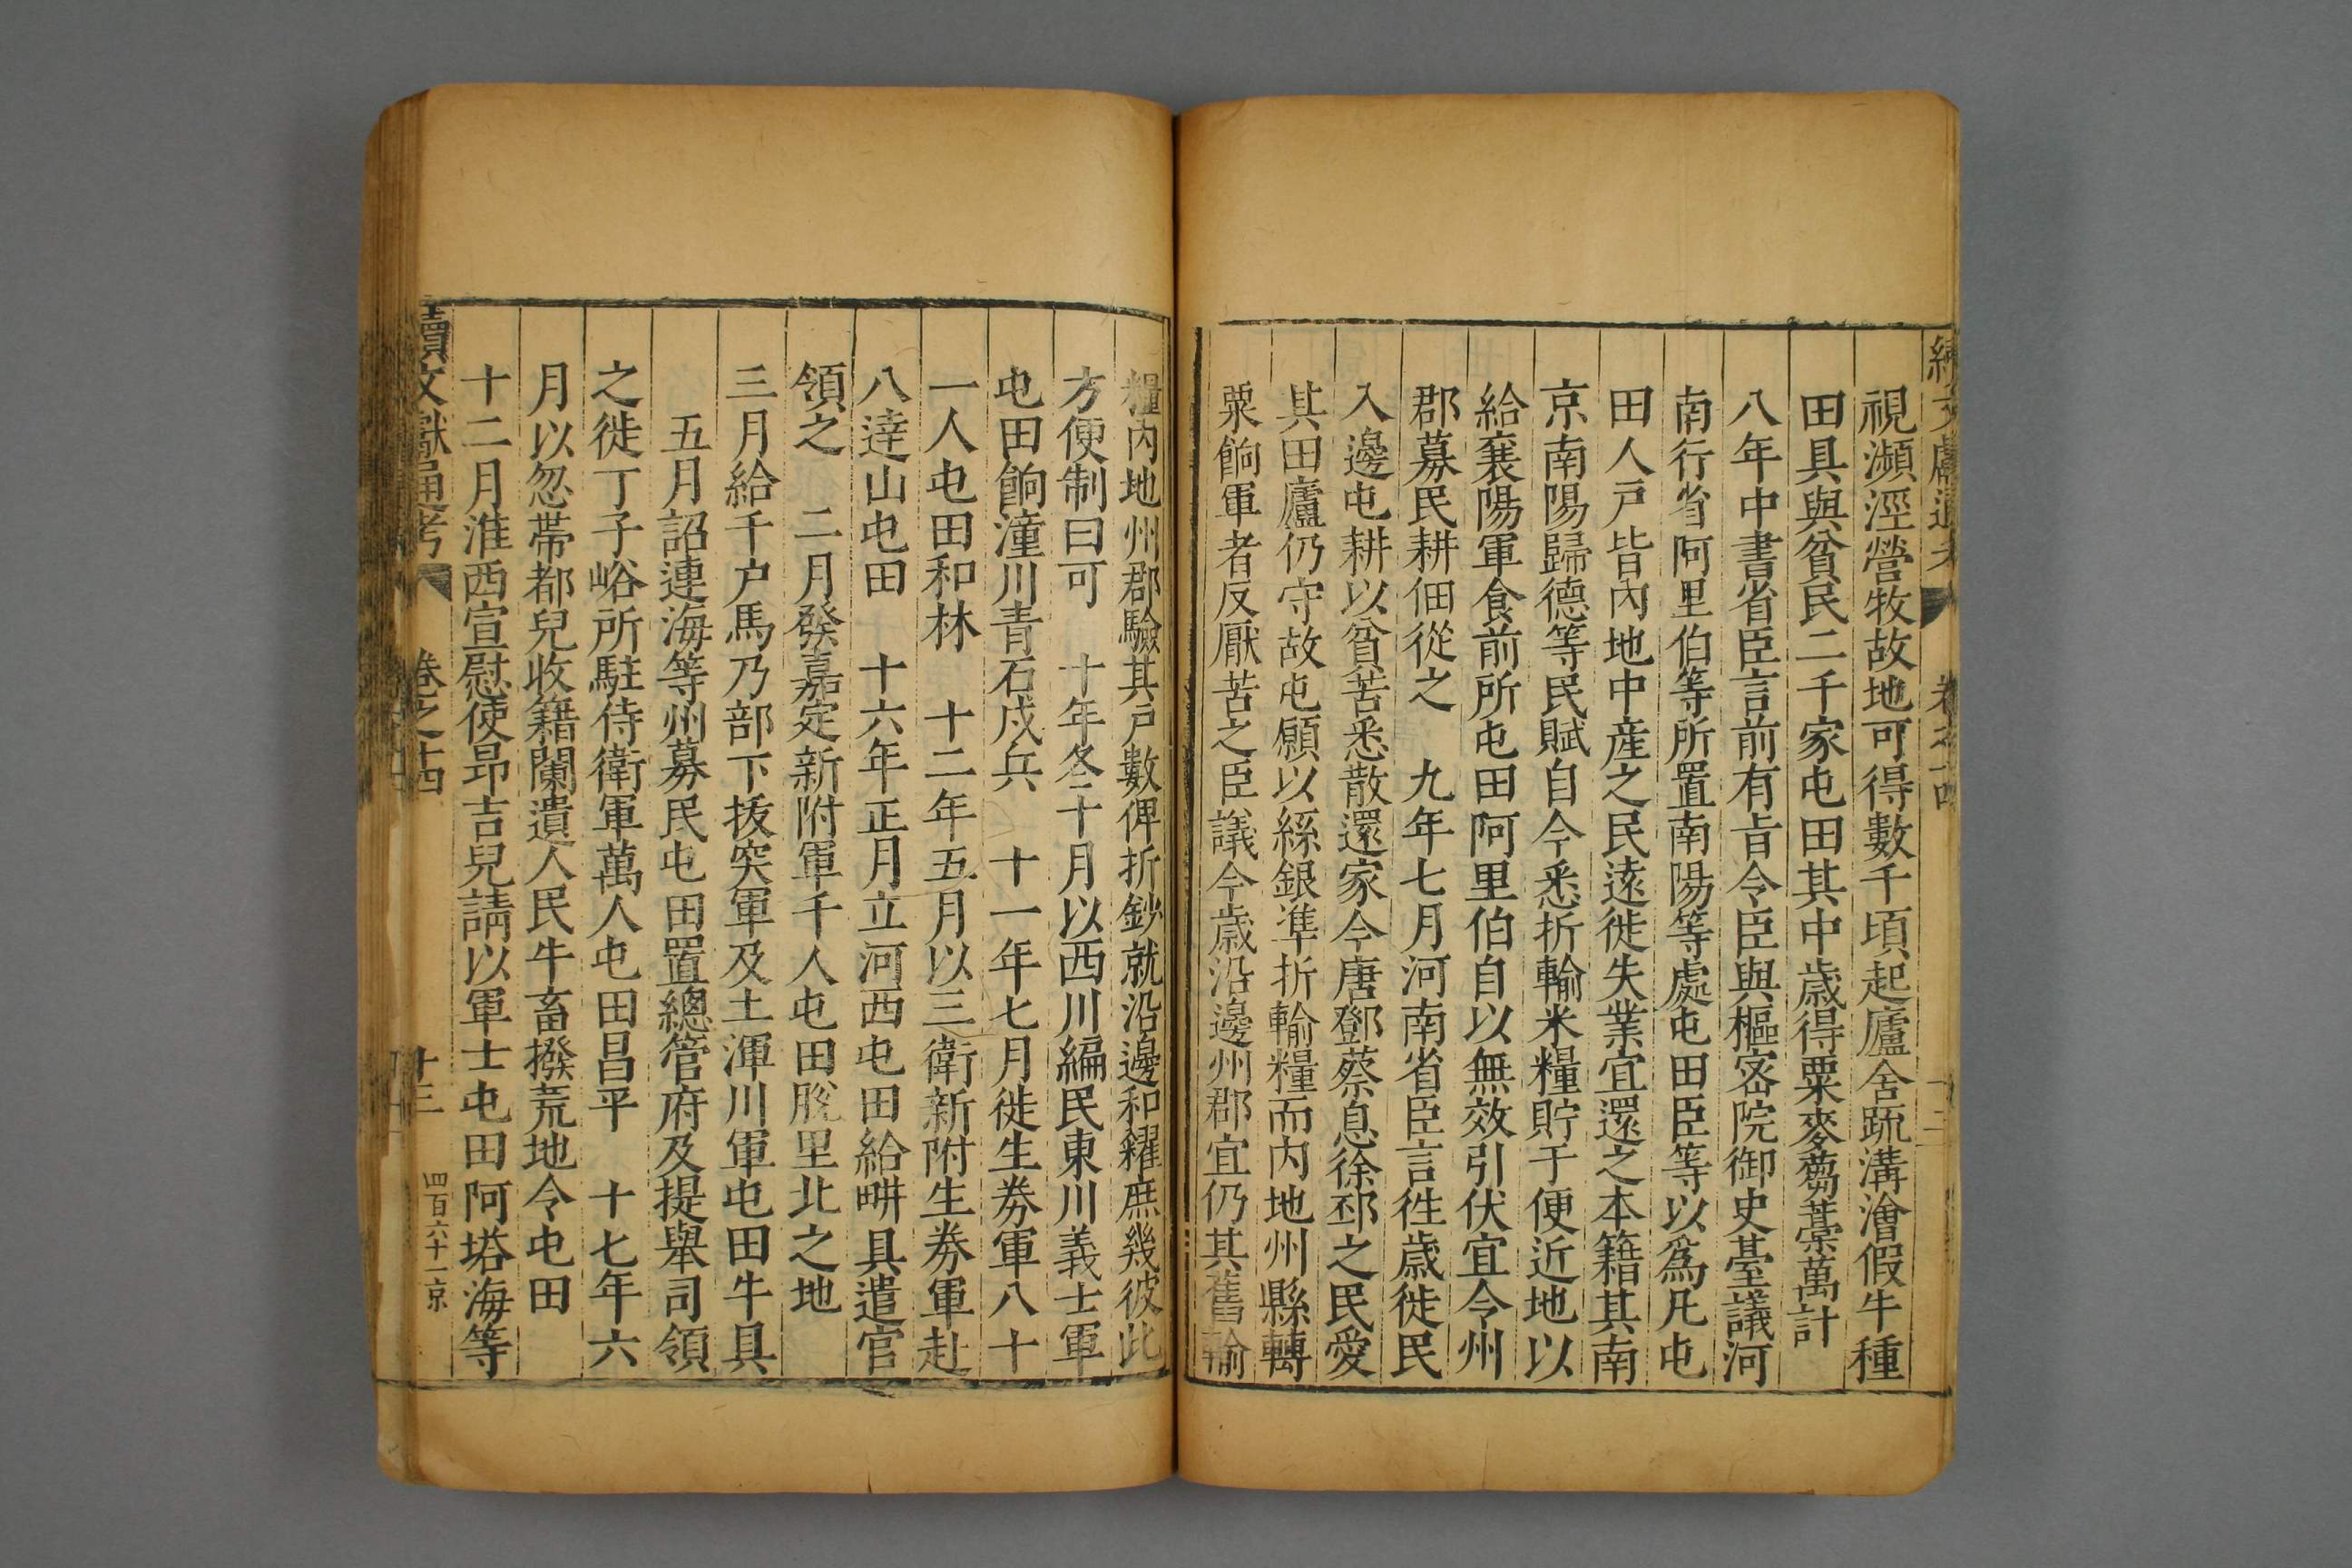 視瀕涇營牧故地可得數千頃起廬舍疏溝澮假牛種
田具與貧民二千家屯田其中歲得粟麥蒭藁萬計
八年中書省臣言前有旨令臣與樞密院御史臺議河
南行省阿里伯等所置南陽等處屯田臣等以爲凡屯
田人戶皆內地中産之民遠徙失業宜還之本籍其南
京南陽歸德等民賦自今悉折輸米糧貯于便近地以
給襄陽軍食前所屯田阿里伯自以無效引伏宜令州
郡募民耕佃從之 九年七月河南省臣言徃歲徙民
入邊屯耕以貧苦悉散還家今唐鄧蔡息徐邳之民愛
其田廬仍守故屯願以絲銀準折輸糧而內地州縣轉
粟餉軍者反厭苦之臣議今歲沿邊州郡宜仍其舊輸
糧內地州郡驗其戸數俾折鈔就沿邊和糴庶幾彼此
方便制曰可 十年冬十月以西川編民東川義士軍
屯田餉潼川青石戍兵 十一年七月徙生券軍八十
一人屯田和林 十二年五月以三衛新附生券軍赴
八達山屯田 十六年正月立河西屯田給畊具遣官
領之 二月發嘉定新附軍千人屯田脫里北之地
三月給千户馬乃部下拔突軍及土渾川軍屯田牛具
五月詔連海等州募民屯田置總管府及提舉司領
之徙丁子峪所駐侍衛軍萬人屯田昌平 十七年六
月以忽帶都兒收籍闌遺人民牛畜撥荒地令屯田
十二月淮西宣慰使昻吉兒請以軍士屯田阿塔海等
續文獻通考 卷之十四 十三 四百六十一京